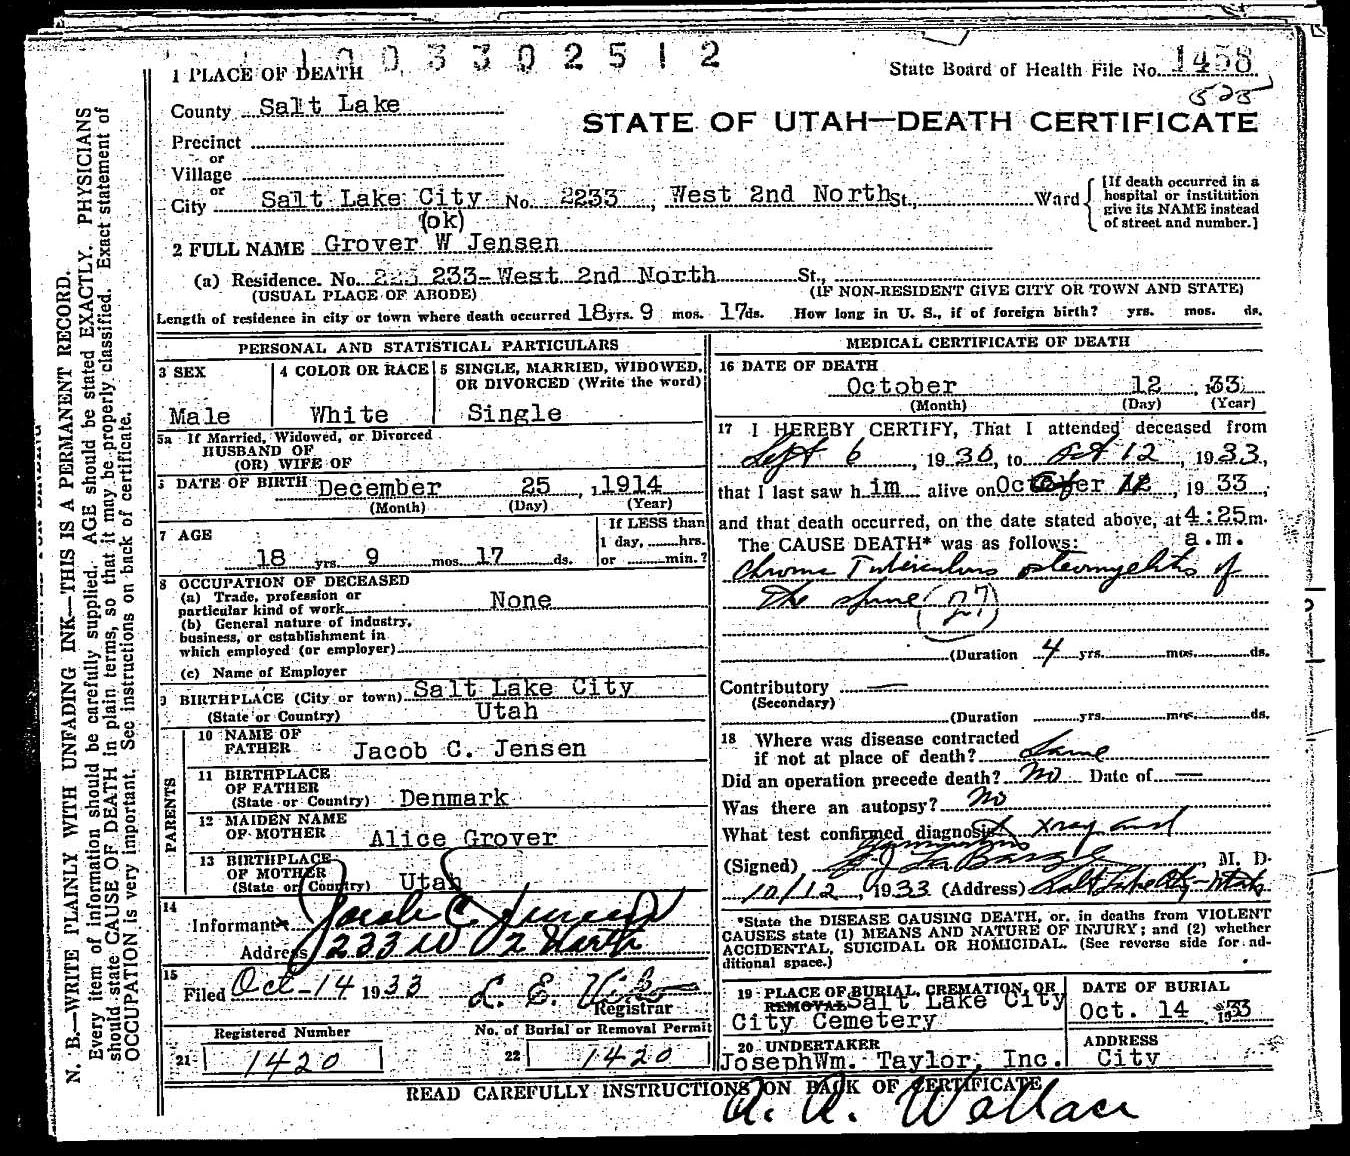 1003302512
State Board of Health File No. 1458
525
1 PLACE OF DEATH
County Salt Lake
STATE OF UTAH—DEATH CERTIFICATE
Precinct
or
Village
or
City Salt Lake City No. 2233, West 2nd North St., Ward
[If death occurred in a hospital or institution give its NAME instead of street and number.]
(ok)
2 FULL NAME Grover W Jensen
(a) Residence. No. 223 233-West 2nd North St.,
(USUAL PLACE OF ABODE) (IF NON-RESIDENT GIVE CITY OR TOWN AND STATE)
Length of residence in city or town where death occurred 18 yrs. 9 mos. 17 ds. How long in U. S., if of foreign birth? yrs. mos. ds.
PERSONAL AND STATISTICAL PARTICULARS
3 SEX
Male
4 COLOR OR RACE
White
5 SINGLE, MARRIED, WIDOWED, OR DIVORCED (Write the word)
Single
5a If Married, Widowed, or Divorced
HUSBAND OF
(OR) WIFE OF
DATE OF BIRTH December 25, 1914
(Month) (Day) (Year)
7 AGE
18 yrs 9 mos. 17 ds.
If LESS than
1 day, hrs.
or min.?
8 OCCUPATION OF DECEASED
(a) Trade, profession or
particular kind of work None
(b) General nature of industry,
business, or establishment in
which employed (or employer)
(c) Name of Employer
9 BIRTHPLACE (City or town) Salt Lake City
(State or Country) Utah
PARENTS
10 NAME OF
FATHER Jacob C. Jensen
11 BIRTHPLACE
OF FATHER
(State or Country) Denmark
12 MAIDEN NAME
OF MOTHER Alice Grover
13 BIRTHPLACE
OF MOTHER
(State or Country) Utah
14
Informant Jacob C. Jensen
Address 233 W 2 North
15
Filed Oct-14 1933 L. E.
Registrar
Registered Number
21 1420
No. of Burial or Removal Permit
22 1420
MEDICAL CERTIFICATE OF DEATH
16 DATE OF DEATH
October 12, 33
(Month) (Day) (Year)
17 I HEREBY CERTIFY, That I attended deceased from
Sept 6, 1930, to Oct 12, 1933,
that I last saw him alive on October 12, 1933,
and that death occurred, on the date stated above, at 4:25 m.
The CAUSE DEATH* was as follows: a.m.
Chronic Tuberculous osteomyelitis of
the spine (27)
(Duration 4 yrs. mos. ds.
Contributory —
(Secondary)
(Duration yrs. mos. ds.
18 Where was disease contracted
if not at place of death? Same
Did an operation precede death? No Date of —
Was there an autopsy? No
What test confirmed diagnosis? xray and
symptoms
(Signed) La Barge, M. D.
10/12, 1933 (Address) Salt Lake City-Utah
*State the DISEASE CAUSING DEATH, or, in deaths from VIOLENT
CAUSES state (1) MEANS AND NATURE OF INJURY; and (2) whether
ACCIDENTAL, SUICIDAL OR HOMICIDAL. (See reverse side for ad-
ditional space.)
19 PLACE OF BURIAL, CREMATION, OR
REMOVAL Salt Lake City
City Cemetery
DATE OF BURIAL
Oct. 14 1933
20 UNDERTAKER
JosephWm. Taylor, Inc.
ADDRESS
City
READ CAREFULLY INSTRUCTIONS ON BACK OF CERTIFICATE
A. A. Wallace
N. B.—WRITE PLAINLY WITH UNFADING INK—THIS IS A PERMANENT RECORD.
Every item of information should be carefully supplied. AGE should be stated EXACTLY. PHYSICIANS
should state CAUSE OF DEATH in plain terms, so that it may be properly classified. Exact statement of
OCCUPATION is very important. See instructions on back of certificate.